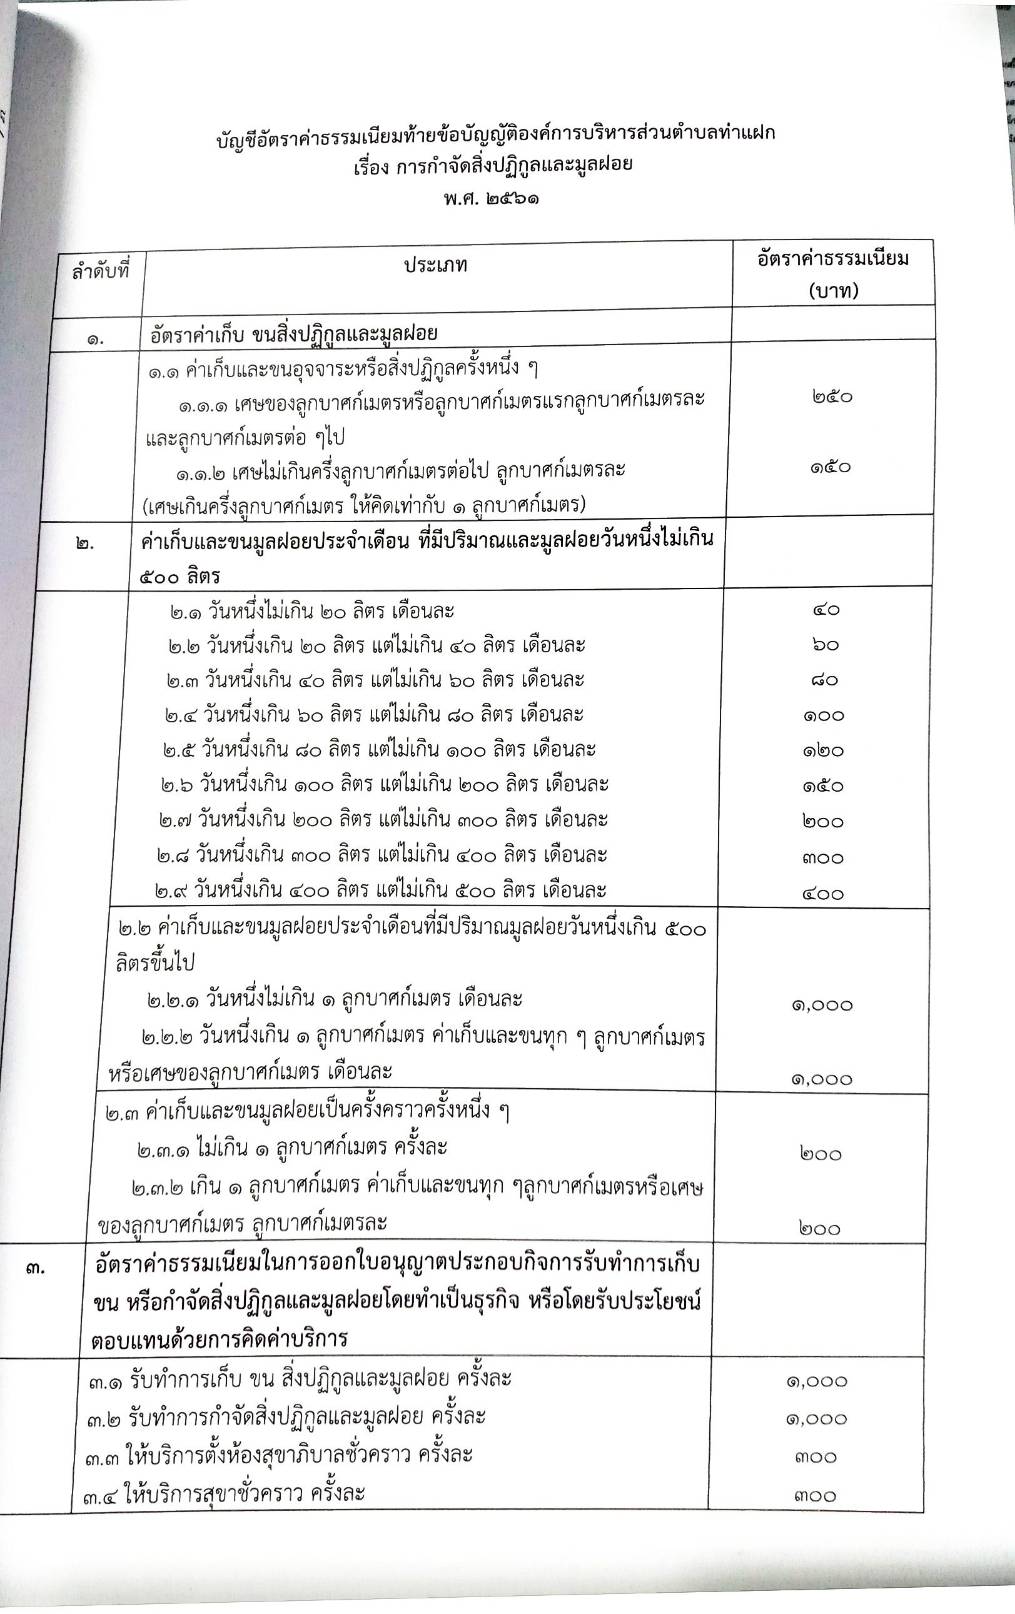 บัญชีอัตราค่าธรรมเนียมท้ายข้อบัญญัติองค์การบริหารส่วนตำบลท่าแฝก
เรื่อง การกำจัดสิ่งปฏิกูลและมูลฝอย
พ.ศ. ๒๕๖๑
ลำดับที่ ประเภท อัตราค่าธรรมเนียม
(บาท)
๑. อัตราค่าเก็บ ขนสิ่งปฏิกูลและมูลฝอย
๑.๑ ค่าเก็บและขนอุจจาระหรือสิ่งปฏิกูลครั้งหนึ่ง ๆ
๑.๑.๑ เศษของลูกบาศก์เมตรหรือลูกบาศก์เมตรแรกลูกบาศก์เมตรละ ๒๕๐
และลูกบาศก์เมตรต่อ ๆไป
๑.๑.๒ เศษไม่เกินครึ่งลูกบาศก์เมตรต่อไป ลูกบาศก์เมตรละ ๑๕๐
(เศษเกินครึ่งลูกบาศก์เมตร ให้คิดเท่ากับ ๑ ลูกบาศก์เมตร)
๒. ค่าเก็บและขนมูลฝอยประจำเดือน ที่มีปริมาณและมูลฝอยวันหนึ่งไม่เกิน
๕๐๐ ลิตร
๒.๑ วันหนึ่งไม่เกิน ๒๐ ลิตร เดือนละ ๔๐
๒.๒ วันหนึ่งเกิน ๒๐ ลิตร แต่ไม่เกิน ๔๐ ลิตร เดือนละ ๖๐
๒.๓ วันหนึ่งเกิน ๔๐ ลิตร แต่ไม่เกิน ๖๐ ลิตร เดือนละ ๘๐
๒.๔ วันหนึ่งเกิน ๖๐ ลิตร แต่ไม่เกิน ๘๐ ลิตร เดือนละ ๑๐๐
๒.๕ วันหนึ่งเกิน ๘๐ ลิตร แต่ไม่เกิน ๑๐๐ ลิตร เดือนละ ๑๒๐
๒.๖ วันหนึ่งเกิน ๑๐๐ ลิตร แต่ไม่เกิน ๒๐๐ ลิตร เดือนละ ๑๕๐
๒.๗ วันหนึ่งเกิน ๒๐๐ ลิตร แต่ไม่เกิน ๓๐๐ ลิตร เดือนละ ๒๐๐
๒.๘ วันหนึ่งเกิน ๓๐๐ ลิตร แต่ไม่เกิน ๔๐๐ ลิตร เดือนละ ๓๐๐
๒.๙ วันหนึ่งเกิน ๔๐๐ ลิตร แต่ไม่เกิน ๕๐๐ ลิตร เดือนละ ๔๐๐
๒.๒ ค่าเก็บและขนมูลฝอยประจำเดือนที่มีปริมาณมูลฝอยวันหนึ่งเกิน ๕๐๐
ลิตรขึ้นไป
๒.๒.๑ วันหนึ่งไม่เกิน ๑ ลูกบาศก์เมตร เดือนละ ๑,๐๐๐
๒.๒.๒ วันหนึ่งเกิน ๑ ลูกบาศก์เมตร ค่าเก็บและขนทุก ๆ ลูกบาศก์เมตร
หรือเศษของลูกบาศก์เมตร เดือนละ ๑,๐๐๐
๒.๓ ค่าเก็บและขนมูลฝอยเป็นครั้งคราวครั้งหนึ่ง ๆ
๒.๓.๑ ไม่เกิน ๑ ลูกบาศก์เมตร ครั้งละ ๒๐๐
๒.๓.๒ เกิน ๑ ลูกบาศก์เมตร ค่าเก็บและขนทุก ๆลูกบาศก์เมตรหรือเศษ
ของลูกบาศก์เมตร ลูกบาศก์เมตรละ ๒๐๐
๓. อัตราค่าธรรมเนียมในการออกใบอนุญาตประกอบกิจการรับทำการเก็บ
ขน หรือกำจัดสิ่งปฏิกูลและมูลฝอยโดยทำเป็นธุรกิจ หรือโดยรับประโยชน์
ตอบแทนด้วยการคิดค่าบริการ
๓.๑ รับทำการเก็บ ขน สิ่งปฏิกูลและมูลฝอย ครั้งละ ๑,๐๐๐
๓.๒ รับทำการกำจัดสิ่งปฏิกูลและมูลฝอย ครั้งละ ๑,๐๐๐
๓.๓ ให้บริการตั้งห้องสุขาภิบาลชั่วคราว ครั้งละ ๓๐๐
๓.๔ ให้บริการสุขาชั่วคราว ครั้งละ ๓๐๐